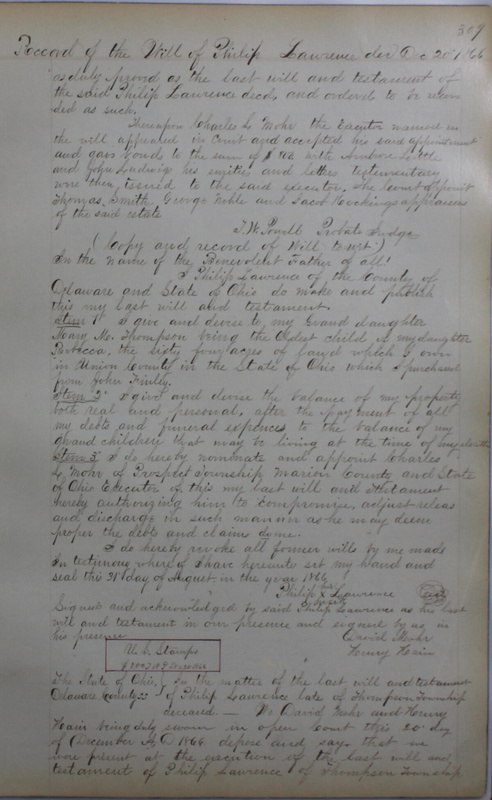 309
Record of the Will of Philip Lawrence decd Dec 20" 1866
as duly proved as the last will and testament of
the said Philip Lawrence decd, and ordered to be recor
ded as such.
Thereupon Charles L. Mohr the Executor named in
the will appeared in Court and accepted his said appointment
and gave bonds to the sum of $ with Ambrose
and John Ludwig his sureties and letters testamentary
were then issued to the said executor. The Court appoint
Thomas Smith, George Noble and Jacob Hocking appraisers
of the said estate
T. W. Powell Probate Judge
(Copy and record of Will to wit:)
In the name of the Benevolent Father of all!
I Philip Lawrence of the County of
Delaware and State of Ohio do make and publish
this my last will and testament.
Item 1" I give and devise to my Grand daughter
Mary M. Thompson being the Oldest child of my daughter
Rebecca, the sixty four acres of land which I own
in Union County in the State of Ohio which I purchased
from John Finley.
Item 2" I give and devise the balance of my property
both real and personal, after the payment of all
my debts and funeral expences to the balance of my
grand children that may be living at the time of my death
Item 3" I do hereby nominate and appoint Charles
L. Mohr of Prospect Township Marion County and State
of Ohio Executor of this my last will and testament
hereby authorizing him to compromise, adjust releas
and discharge in such manner as he may deem
proper the debts and claims due me.
I do hereby revoke all former wills by me made
In testimony where of I have hereunto set my hand and
seal this 28" day of August in the year 1866
Philip his X mark Lawrence Seal
Signed and acknowledged by said Philip Lawrence as his last
will and testament in our presence and signed by us in
his presence
David Mohr
Henry Hain
U. S. Stamps
The State of Ohio, } In the matter of the last will and testament
Delaware County ss } of Philip Lawrence late of Thompson Township
deceased. — We David Mohr and Henry
Hain being duly sworn in open Court this 20" day
of December A. D. 1866 depose and say that we
were present at the execution of the last will and
testament of Philip Lawrence of Thompson Township